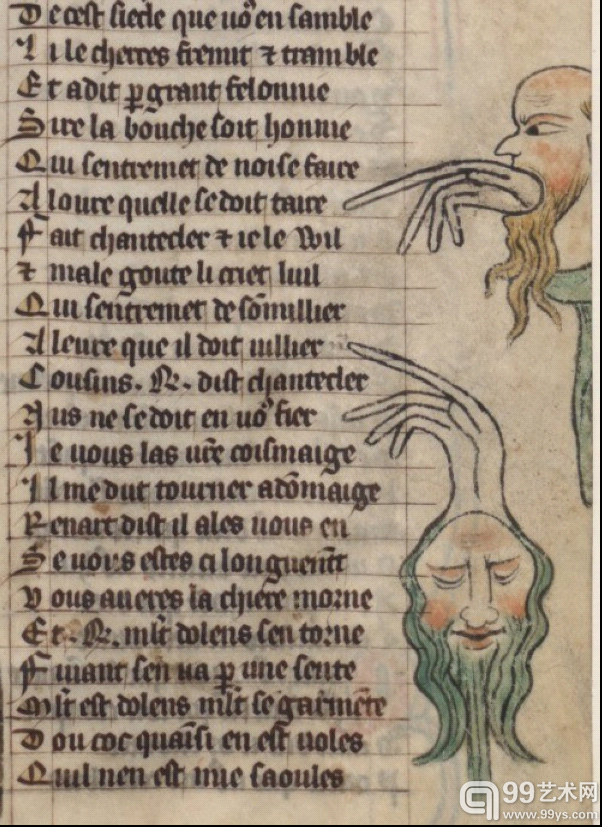 De cest siecle que uo⁹ en samble
Li lecherres fremit ⁊ tramble
Et a dit ꝑ grant felonnie
Sire la bouche soit honnie
Qui sentremet de noise faire
A loure quelle se doit taire
Fait chantecler ⁊ ie le Wil
⁊ male goute li criet luil
Qui sentremet de sōmillier
A leure que il doit uillier
Cousins .R. dist chantecler
Nus ne se doit en uo⁹ fier
Je uous las ur̄e coismaige
Il me dut tourner a dōmaige
Renart dist il ales uous en
Se uous estes ci longuemt̄
Vous aueres la chiere morne
Et .R. ml̄t dolens sen torne
Fuiant sen ua ꝑ une sente
Ml̄t est dolens ml̄t se garmēte
Dou coc quāsi en est uoles
Quil nen est mie saoules
99艺术网
www.99ys.com